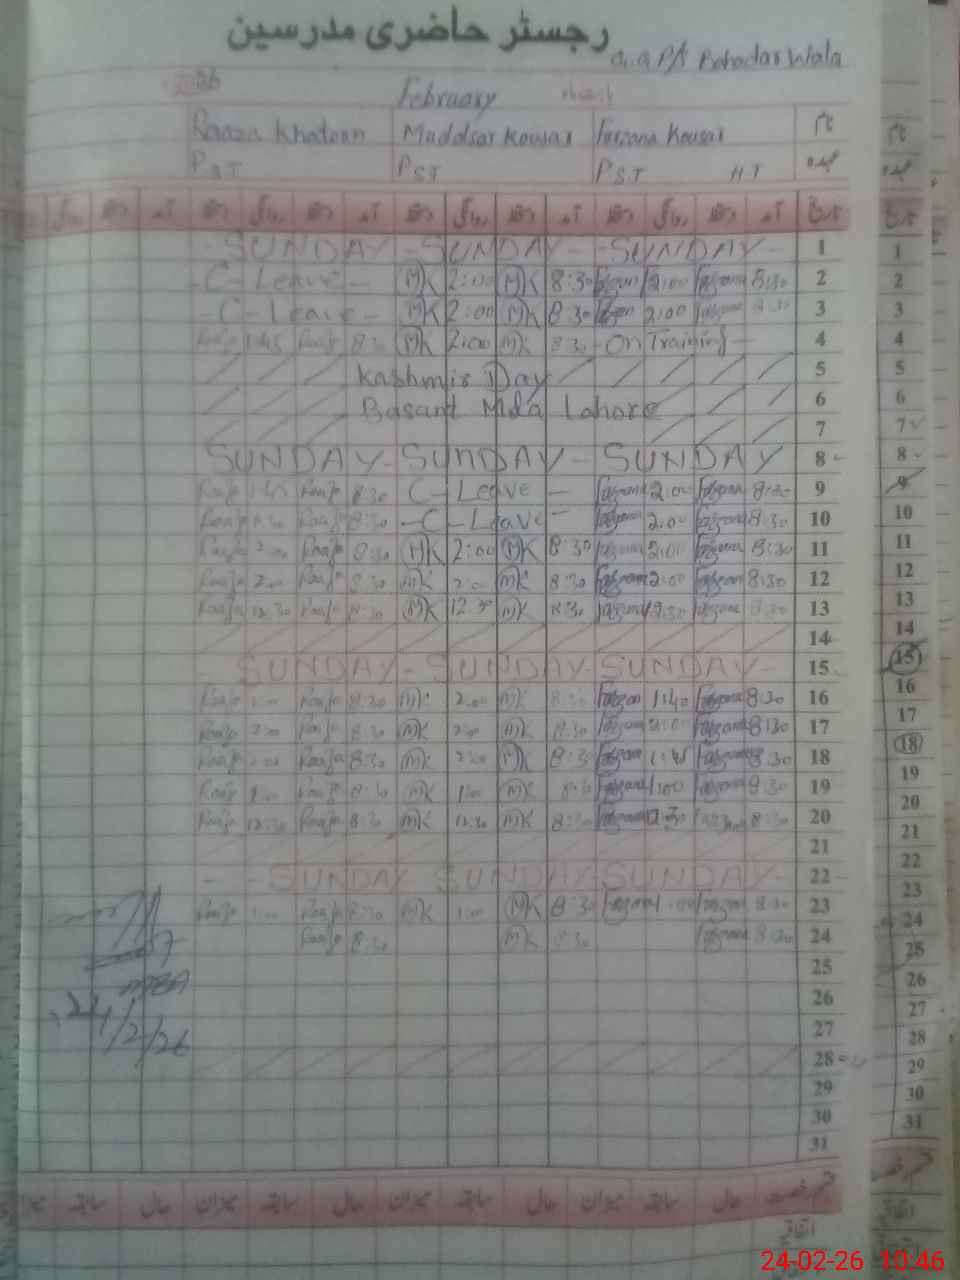 رجسٹر حاضری مدرسین
G.G P/S Bahadar Wala
2026
February
نام Farzana Kousar Muddsar Kousar Raaza Khatoon
عہدہ P.S.T H T PST PST
تاریخ آمد دستخط روانگی دستخط آمد دستخط روانگی دستخط آمد دستخط روانگی دستخط آمد دستخط روانگی
1 - SUNDAY - SUNDAY - SUNDAY -
2 - C - Leave - MK 2:00 MK 8:30 Farzana 2:00 Farzana 8:30
3 - C - Leave - MK 2:00 MK 8:30 Farzana 2:00 Farzana 8:30
4 Raaza 1:45 Raaza 8:30 MK 2:00 MK 8:30 - On Training -
5 Kashmir Day
6 Basant Mela Lahore
7
8 SUNDAY - SUNDAY - SUNDAY
9 Raaza 1:45 Raaza 8:30 C - Leave - Farzana 2:00 Farzana 8:30
10 Raaza 1:30 Raaza 8:30 - C - Leave - Farzana 2:00 Farzana 8:30
11 Raaza 2:00 Raaza 8:30 MK 2:00 MK 8:30 Farzana 2:00 Farzana 8:30
12 Raaza 2:00 Raaza 8:30 MK 2:00 MK 8:30 Farzana 2:00 Farzana 8:30
13 Raaza 12:30 Raaza 8:30 MK 12:30 MK 8:30 Farzana 12:30 Farzana 8:30
14
15 SUNDAY - SUNDAY - SUNDAY -
16 Raaza 2:00 Raaza 8:30 MK 2:00 MK 8:30 Farzana 1:40 Farzana 8:30
17 Raaza 2:00 Raaza 8:30 MK 2:00 MK 8:30 Farzana 2:00 Farzana 8:30
18 Raaza 2:00 Raaza 8:30 MK 2:00 MK 8:30 Farzana 1:45 Farzana 8:30
19 Raaza 1:00 Raaza 8:30 MK 1:00 MK 8:30 Farzana 1:00 Farzana 8:30
20 Raaza 12:30 Raaza 8:30 MK 12:30 MK 8:30 Farzana 12:30 Farzana 8:30
21
22 - - SUNDAY SUNDAY - SUNDAY -
23 Raaza 1:00 Raaza 8:30 MK 1:00 MK 8:30 Farzana 1:00 Farzana 8:30
24 Raaza 8:30 MK 8:30 Farzana 8:30
25
26
24/2/26
27
28
29
30
31
قسم رخصت حال سابقہ میزان حال سابقہ میزان حال سابقہ میزان حال سابقہ میزان
اتفاقیہ
نام
عہدہ
تاریخ
1
2
3
4
5
6
7
8
9
10
11
12
13
14
15
16
17
18
19
20
21
22
23
24
25
26
27
28
29
30
31
قسم رخصت
اتفاقیہ
24-02-26 10:46